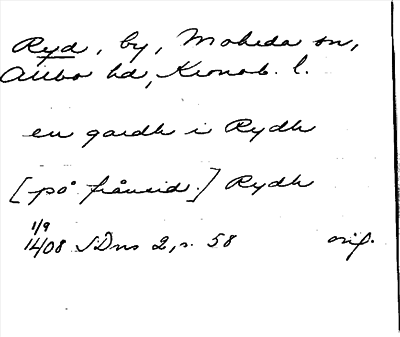 Ryd, by, Moheda sn,
Allbo hd, Kronob. l.
en gardh i Rydh
[på frånsid.] Rydh
1/9
1408 SDns 2, s. 58 orig.